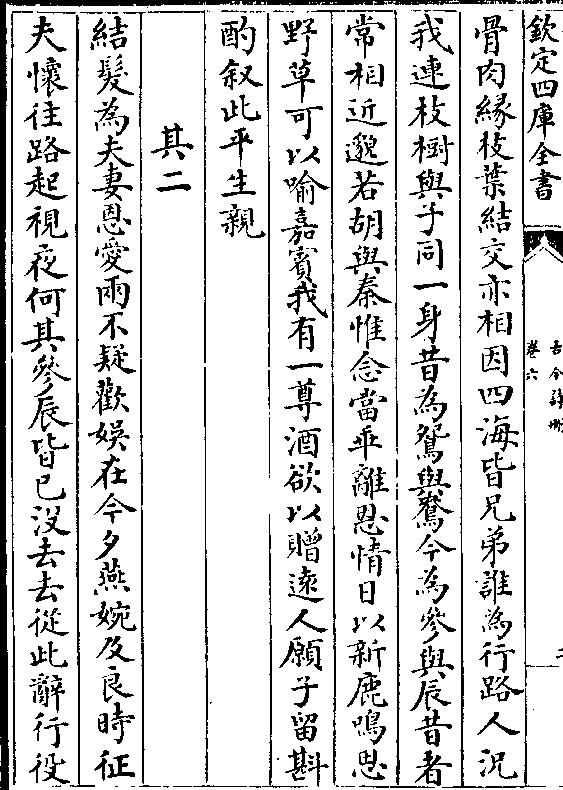 欽定四庫全書
古今詩刪
卷六
骨肉緣枝葉結交亦相因四海皆兄弟誰為行路人況
我連枝樹與子同一身昔為鴛與鴦今為參與辰昔者
常相近邈若胡與秦惟念當乖離恩情日以新鹿鳴思
野草可以喻嘉賓我有一尊酒欲以贈遠人願子留斟
酌叙此平生親
其二
結髮為夫妻恩愛兩不疑歡娛在今夕燕婉及良時征
夫懷往路起視夜何其參辰皆已没去去從此辭行役